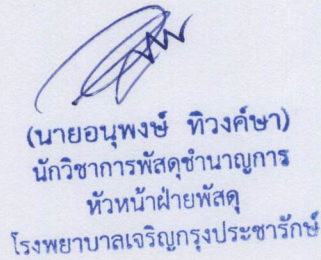 (นายอนุพงษ์ ทิวงค์ษา)
นักวิชาการพัสดุชำนาญการ
หัวหน้าฝ่ายพัสดุ
โรงพยาบาลเจริญกรุงประชารักษ์